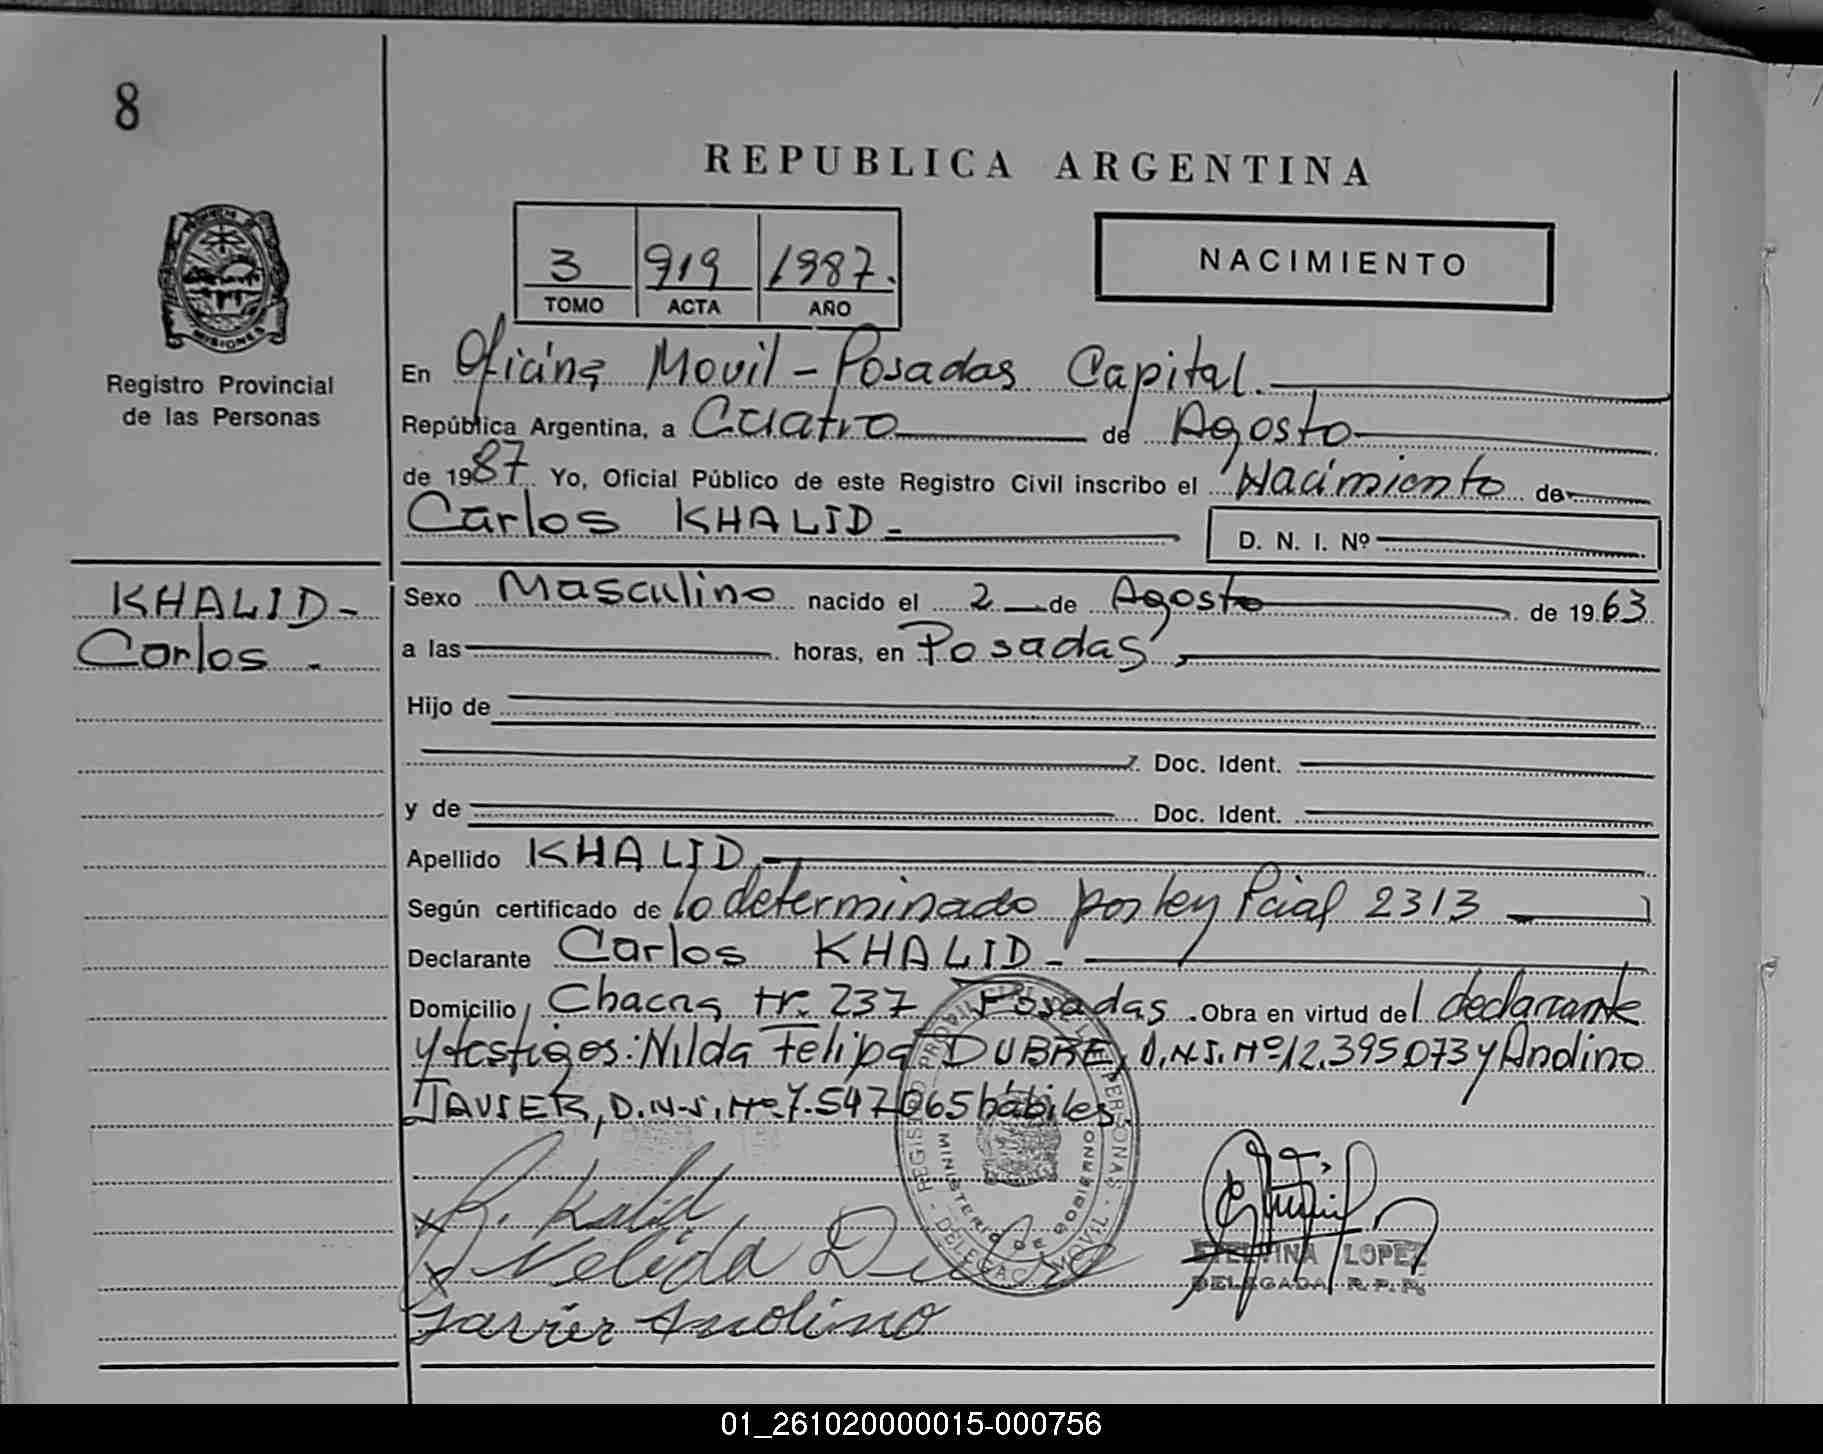 8
REPUBLICA ARGENTINA
3 919 1987.
TOMO ACTA AÑO
NACIMIENTO
MISIONES
Registro Provincial
de las Personas
En Oficina Movil - Posadas Capital.
República Argentina, a Cuatro de Agosto
de 1987 Yo, Oficial Público de este Registro Civil inscribo el Nacimiento de
Carlos KHALID - D. N. I. Nº
KHALID -
Carlos .
Sexo Masculino nacido el 2 de Agosto de 1963
a las horas, en Posadas,
Hijo de
Doc. Ident.
y de Doc. Ident.
Apellido KHALID -
Según certificado de lo determinado por ley Pcial 2313
Declarante Carlos KHALID -
Domicilio Chacra 237 Posadas. Obra en virtud del declarante
y testigos: Nilda Felipa DUBRE, D.N.I. Nº 12.395.073 y Andino
JAVIER, D.N.I. Nº 7.547.065 hábiles.
REGISTRO PROVINCIAL DE LAS PERSONAS - DELEGAC. MOVIL -
MINISTERIO DE GOBIERNO
Kalid
Nelida
Javier Andino
ETELVINA LOPEZ
DELEGADA R.P.P.
01_261020000015-000756